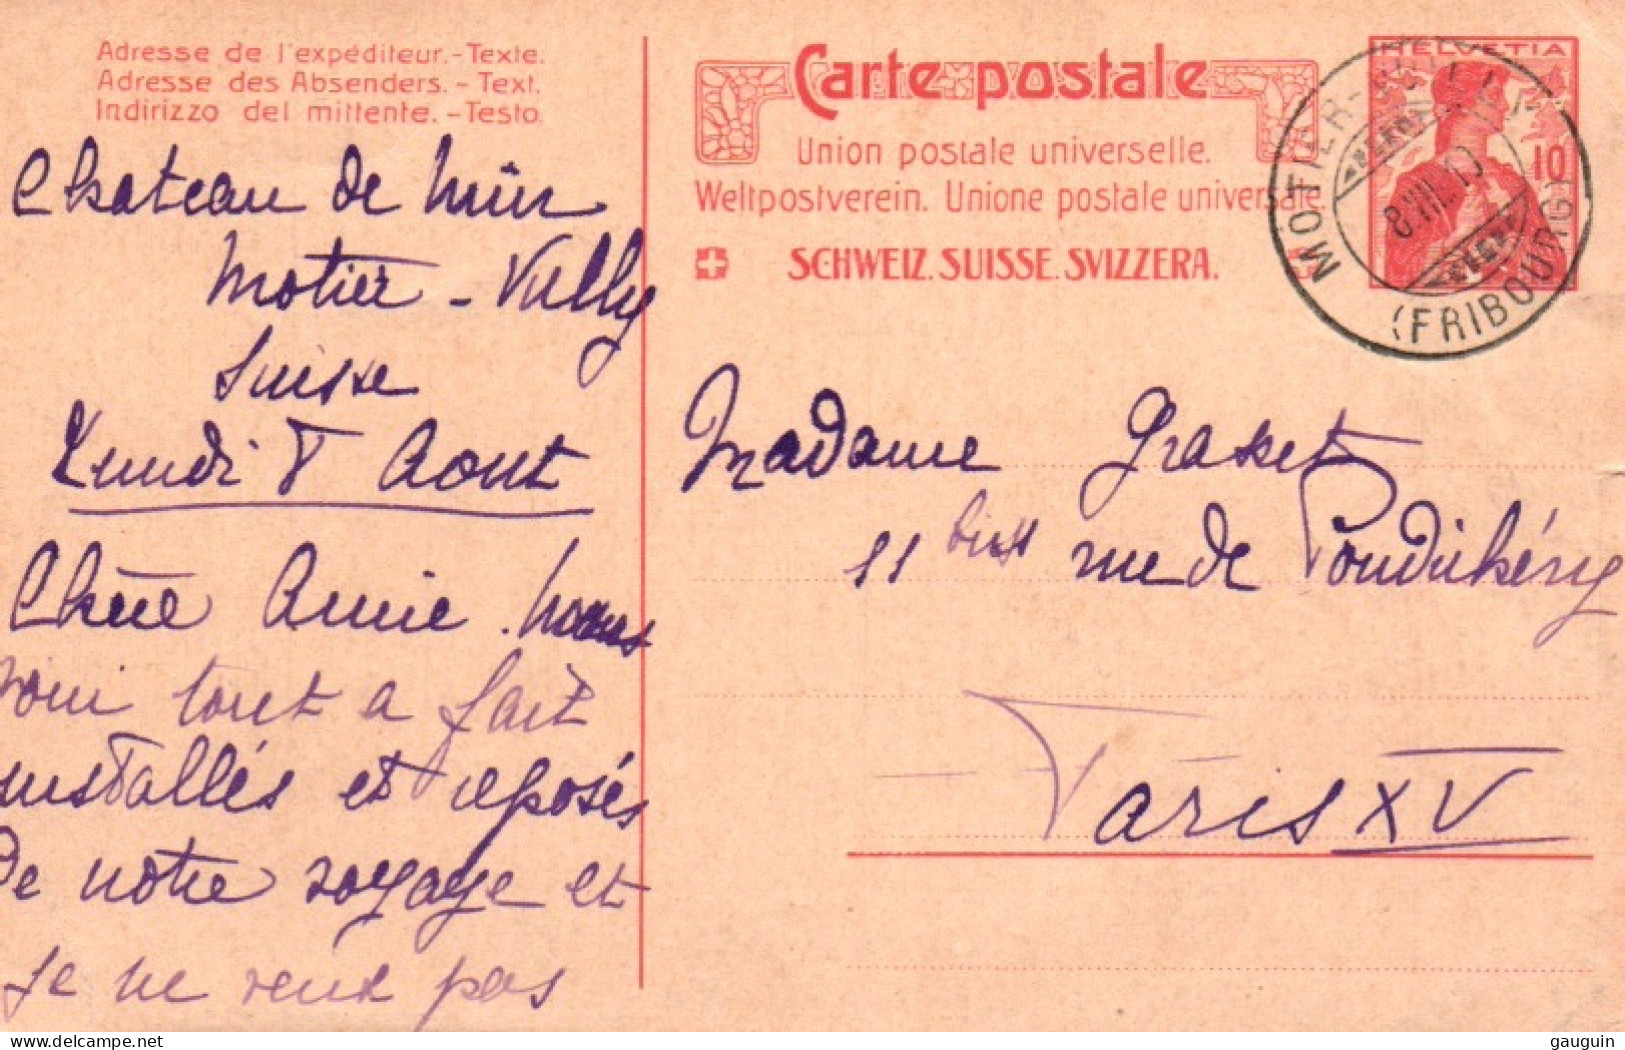 Adresse de l'expéditeur.-Texte.
Adresse des Absenders. - Text.
Indirizzo del mittente. -Testo.
Château de Mür
Motier - Vully
Suisse
Lundi 8 Aout
Chère Amie. nous
voici tout a fait
installés et reposés
de notre voyage et
je ne veux pas
Carte postale
Union postale universelle.
Weltpostverein. Unione postale universale.
SCHWEIZ. SUISSE. SVIZZERA.
HELVETIA
10
MOTIER-VULLY
8.VIII.10
(FRIBOURG)
Madame Grasset
11 bis rue de Pondichéry
Paris XV
delcampe.net
gauguin